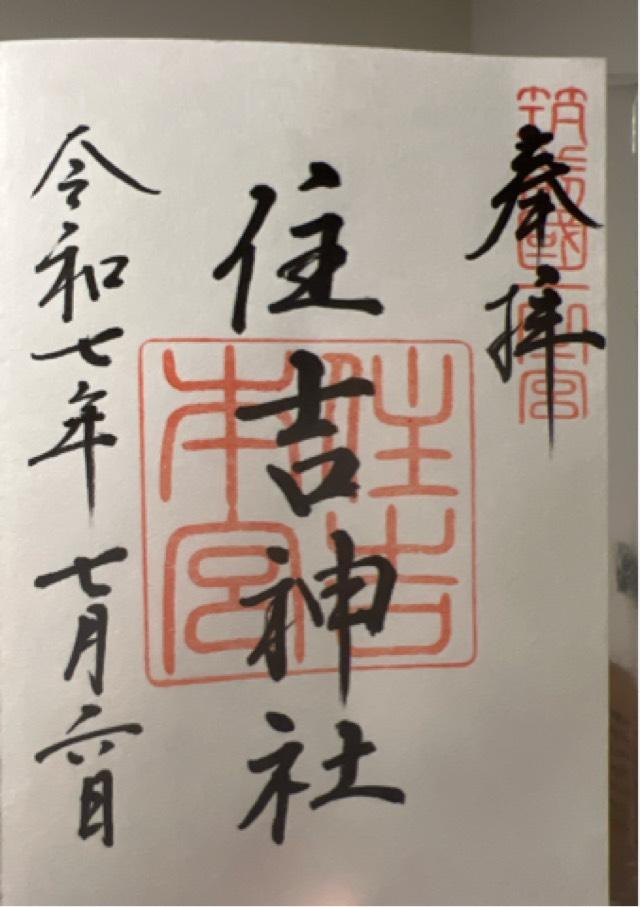 奉拝
筑前國一之宮
住吉神社
住吉本宮
令和七年七月六日